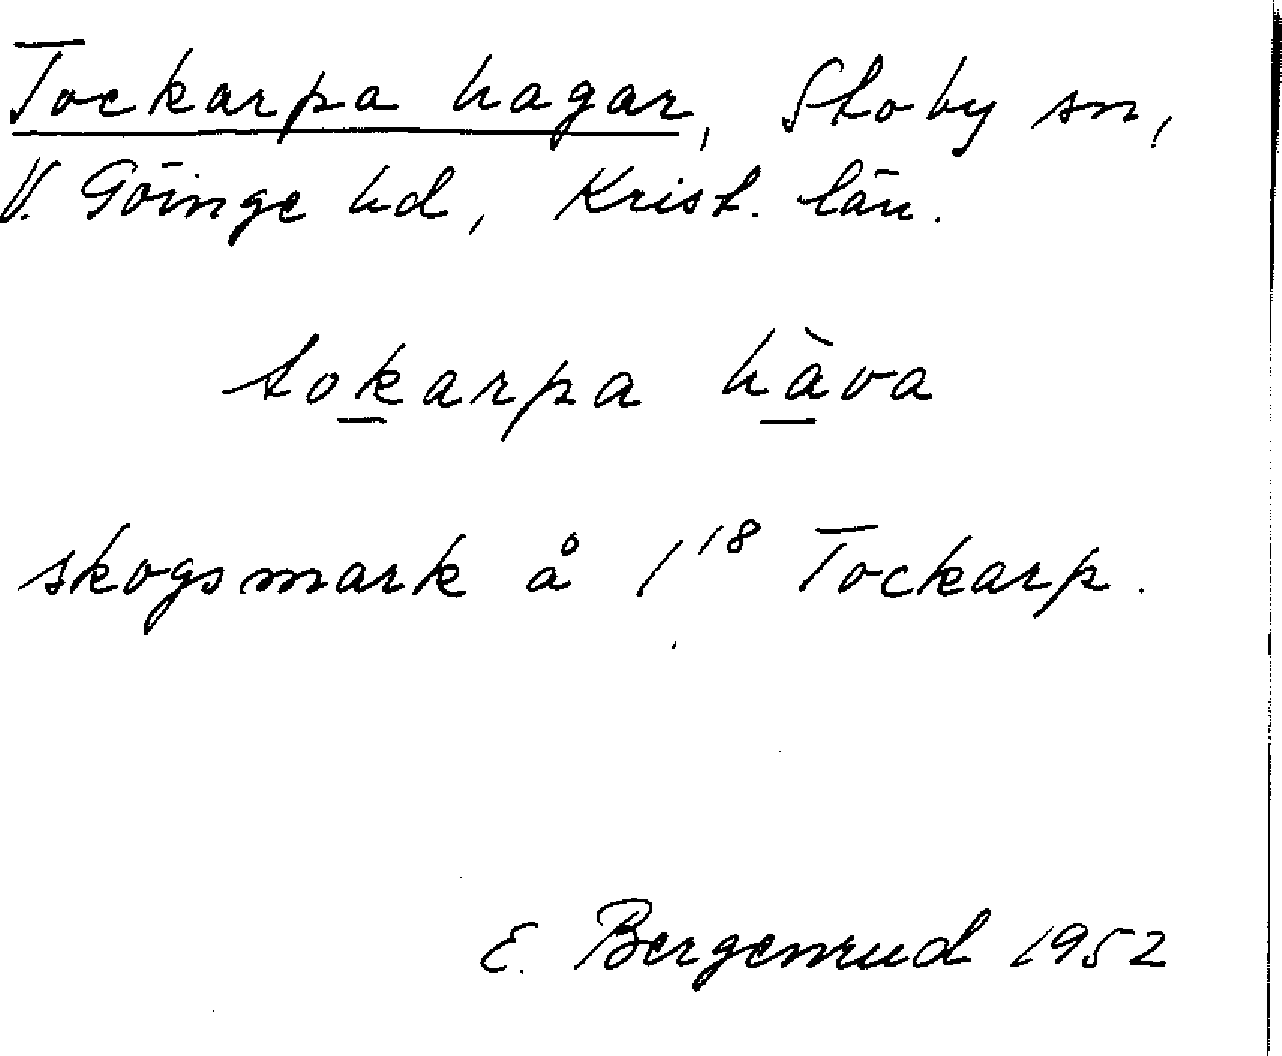 Tockarpa hagar, Stoby sn,
V. Göinge hd, Krist. län.
tokarpa hàva
skogsmark å 1¹⁸ Tockarp.
E. Bergenrud 1952